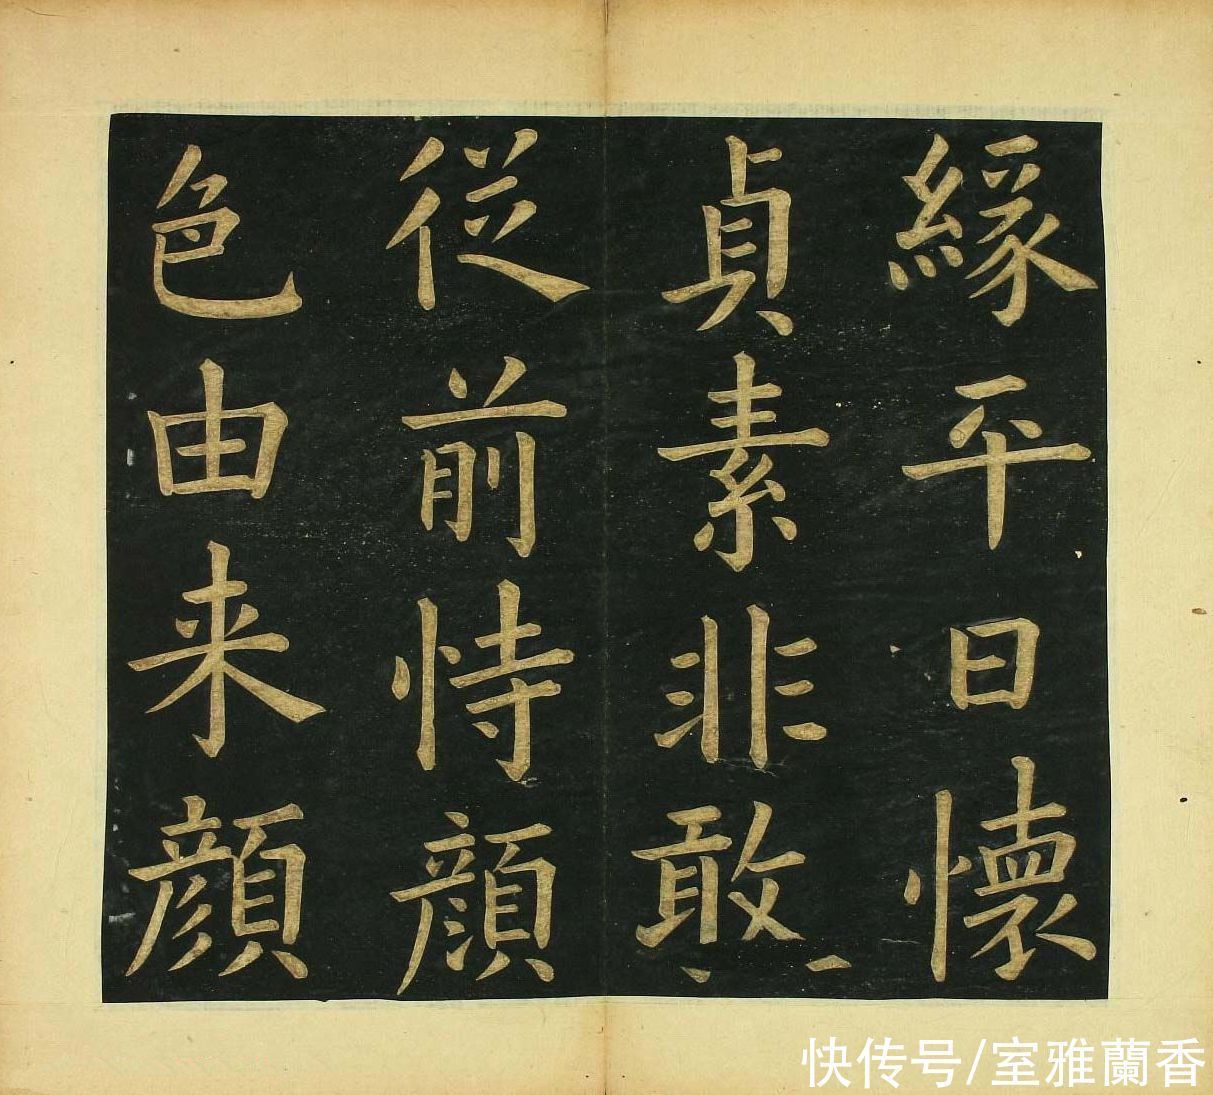 緣平日懷
貞素非敢
從前恃顔
色由来顔
快传号/室雅蘭香